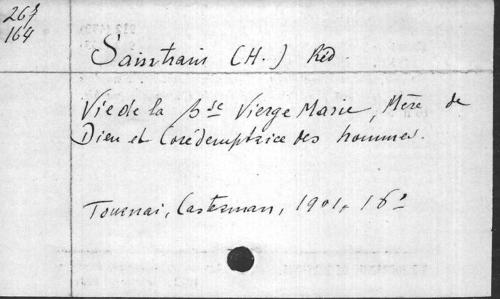 267
164
Saintrain (H.) Réd.
Vie de la Bse Vierge Marie, Mère de
Dieu et Corédemptrice des hommes.
Tournai, Casterman, 1901, 16°